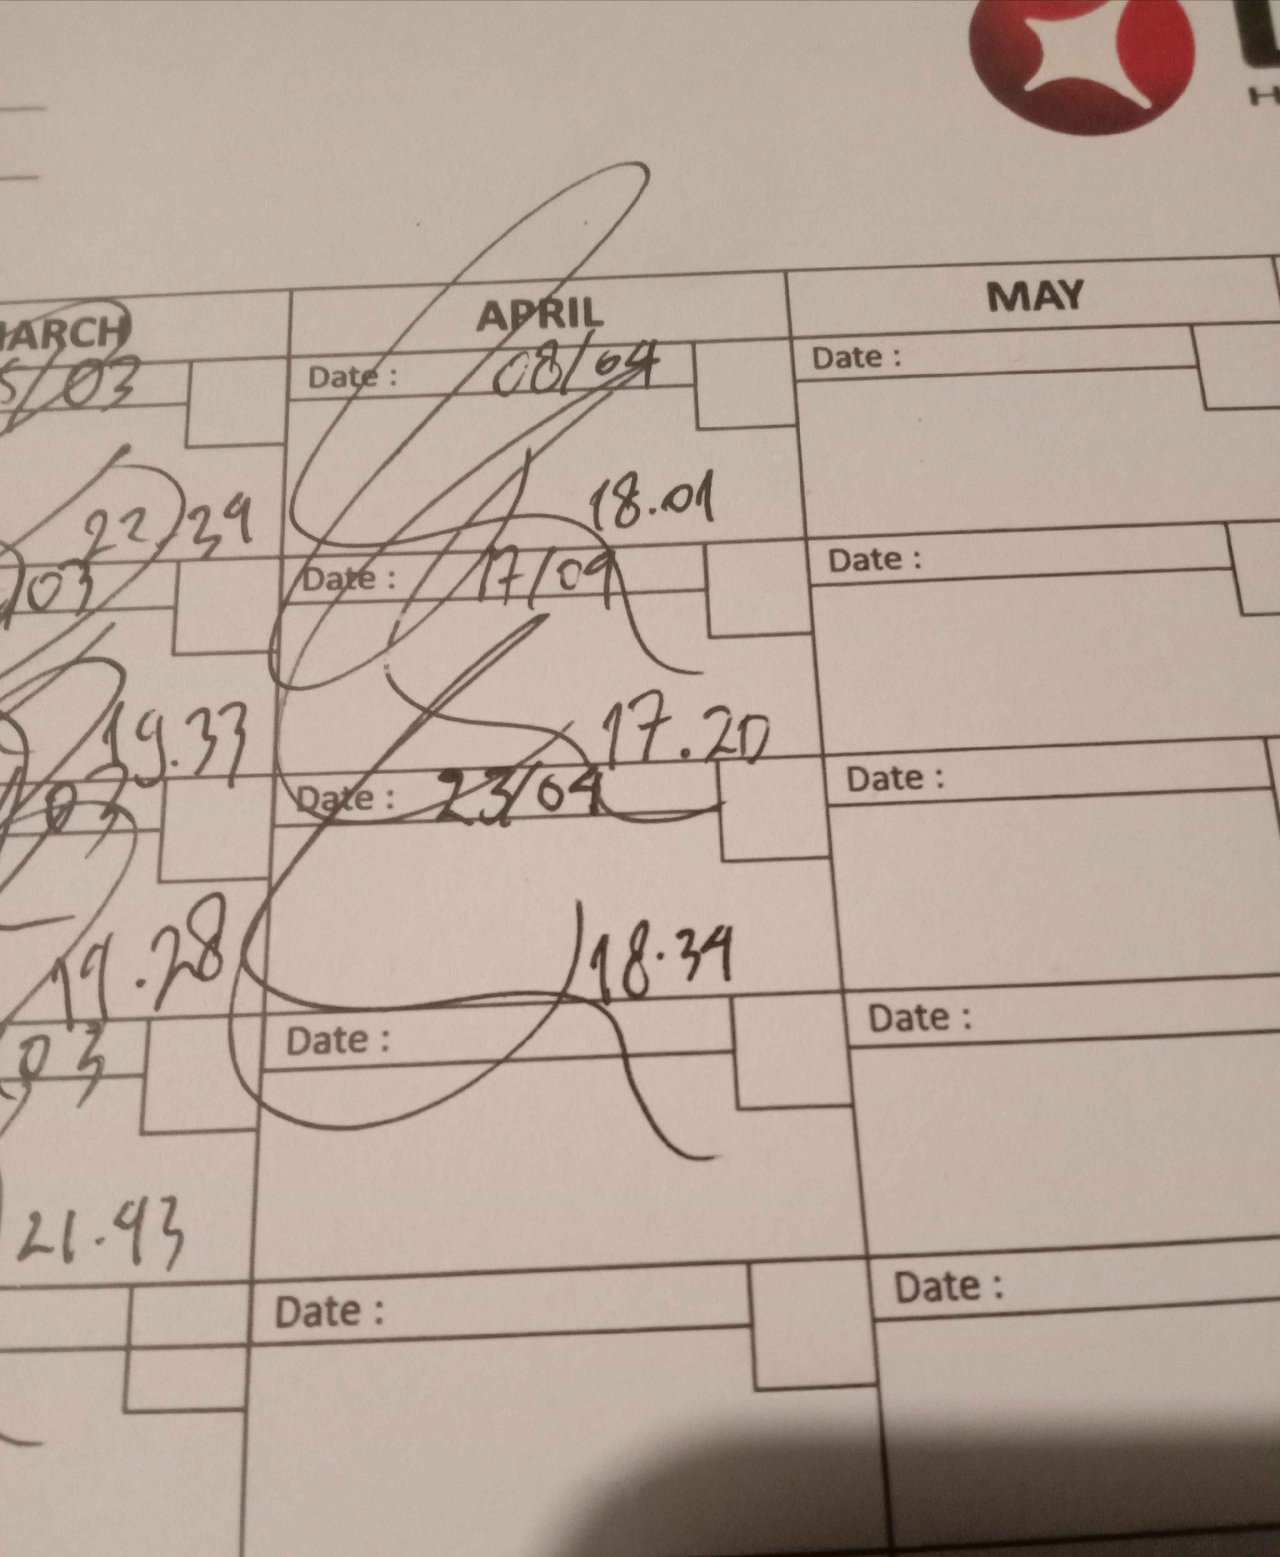 MARCH APRIL MAY
5/03 Date : 08/04 Date :
22.39 18.01
/03 Date : 17/04 Date :
19.33 17.20
03 Date : 23/04 Date :
19.28 18.34
03 Date : Date :
21.43
Date : Date :